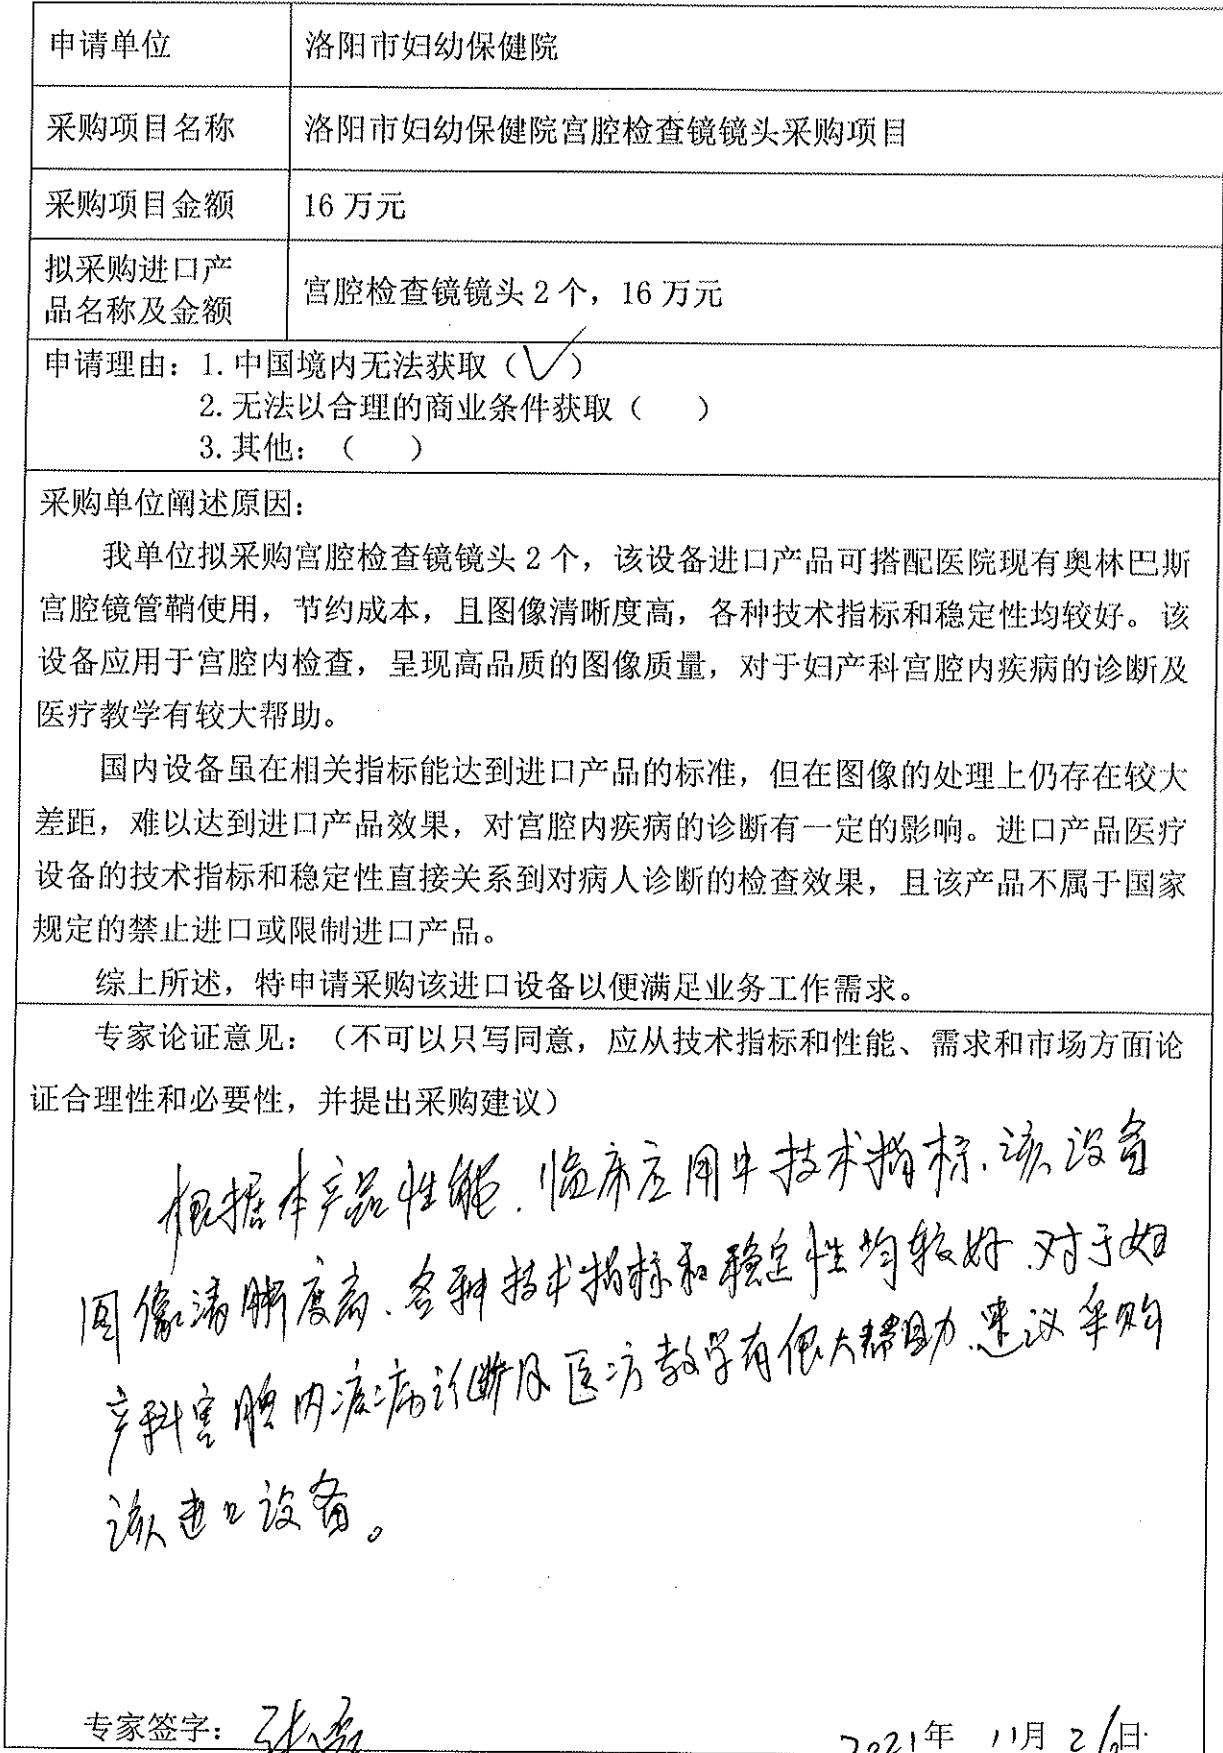 申请单位 洛阳市妇幼保健院
采购项目名称 洛阳市妇幼保健院宫腔检查镜镜头采购项目
采购项目金额 16 万元
拟采购进口产
品名称及金额 宫腔检查镜镜头 2 个，16 万元
申请理由：1. 中国境内无法获取（√）
2. 无法以合理的商业条件获取（ ）
3. 其他：（ ）
采购单位阐述原因：
我单位拟采购宫腔检查镜镜头 2 个，该设备进口产品可搭配医院现有奥林巴斯
宫腔镜管鞘使用，节约成本，且图像清晰度高，各种技术指标和稳定性均较好。该
设备应用于宫腔内检查，呈现高品质的图像质量，对于妇产科宫腔内疾病的诊断及
医疗教学有较大帮助。
国内设备虽在相关指标能达到进口产品的标准，但在图像的处理上仍存在较大
差距，难以达到进口产品效果，对宫腔内疾病的诊断有一定的影响。进口产品医疗
设备的技术指标和稳定性直接关系到对病人诊断的检查效果，且该产品不属于国家
规定的禁止进口或限制进口产品。
综上所述，特申请采购该进口设备以便满足业务工作需求。
专家论证意见：（不可以只写同意，应从技术指标和性能、需求和市场方面论
证合理性和必要性，并提出采购建议）
根据本产品性能、临床应用中技术指标、该设备
图像清晰度高、各种技术指标和稳定性均较好、对于妇
产科宫腔内疾病诊断及医疗教学有很大帮助、建议采购
该进口设备。
专家签字： 2021年 11月 26日